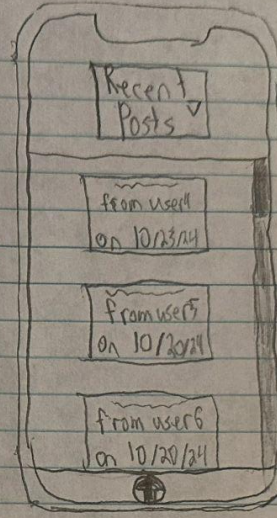 Recent
Posts
from user4
on 10/23/24
from user5
on 10/20/24
from user6
on 10/20/24